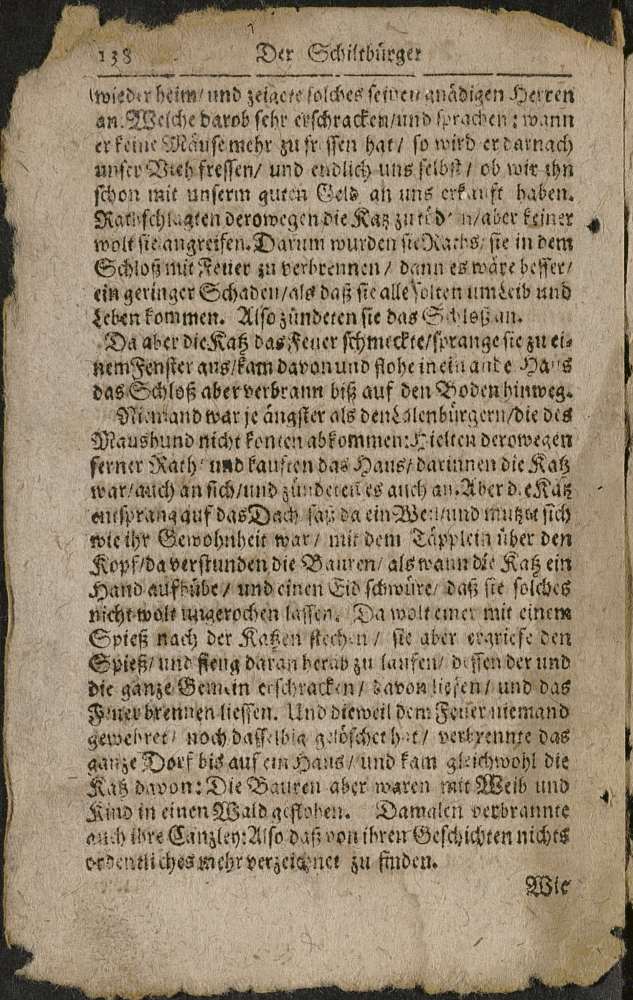 138 Der Schiltbürger
wieder heim/ und zeigete solches seinen gnädigen Herren
an. Welche darob sehr erschracken/ und sprachen: wann
er keine Mäuse mehr zu fressen hat/ so wird er darnach
unser Vieh fressen/ und endlich uns selbst/ ob wir ihn
schon mit unserm guten Geld an uns erkaufft haben.
Rathschlagten derowegen die Katz zu töden/ aber keiner
wolt sie angreifen. Darum wurden sie Raths/ sie in dem
Schloß mit Feuer zu verbrennen/ dann es wäre besser/
ein geringer Schaden/ als daß sie alle solten um Leib und
Leben kommen. Also zündeten sie das Schloß an.
Da aber die Katz das Feuer schmeckte/ sprange sie zu ei-
nem Fenster aus/ kam davon und flohe in ein ander Haus
das Schloß aber verbrann biß auf den Boden hinweg.
Niemand war je ängster als den Lalenbürgern/ die des
Maushund nicht konten abkommen: Hielten derowegen
ferner Rath/ und kauften das Haus/ darinnen die Katz
war/ auch an sich/ und zündeten es auch an. Aber die Katz
entsprang auf das Dach/ saß da ein Weil/ und mutzte sich
wie ihr Gewohnheit war/ mit dem Täpplein über den
Kopf/ da verstunden die Bauren/ als wann die Katz ein
Hand aufhübe/ und einen Eid schwüre/ daß sie solches
nicht wolt ungerochen lassen. Da wolt einer mit einem
Spieß nach der Katzen stechen/ sie aber ergriefe den
Spieß/ und fieng daran herab zu laufen/ dessen der und
die ganze Gemein erschracken/ davon liefen/ und das
Feuer brennen liessen. Und dieweil dem Feuer niemand
gewehret/ noch dasselbig gelöschet hat/ verbrennte das
ganze Dorf bis auf ein Haus/ und kam gleichwohl die
Katz davon: Die Bauren aber waren mit Weib und
Kind in einen Wald geflohen. Damalen verbrannte
auch ihre Canzley: Also daß von ihren Geschichten nichts
ordentliches mehr verzeichnet zu finden.
Wie